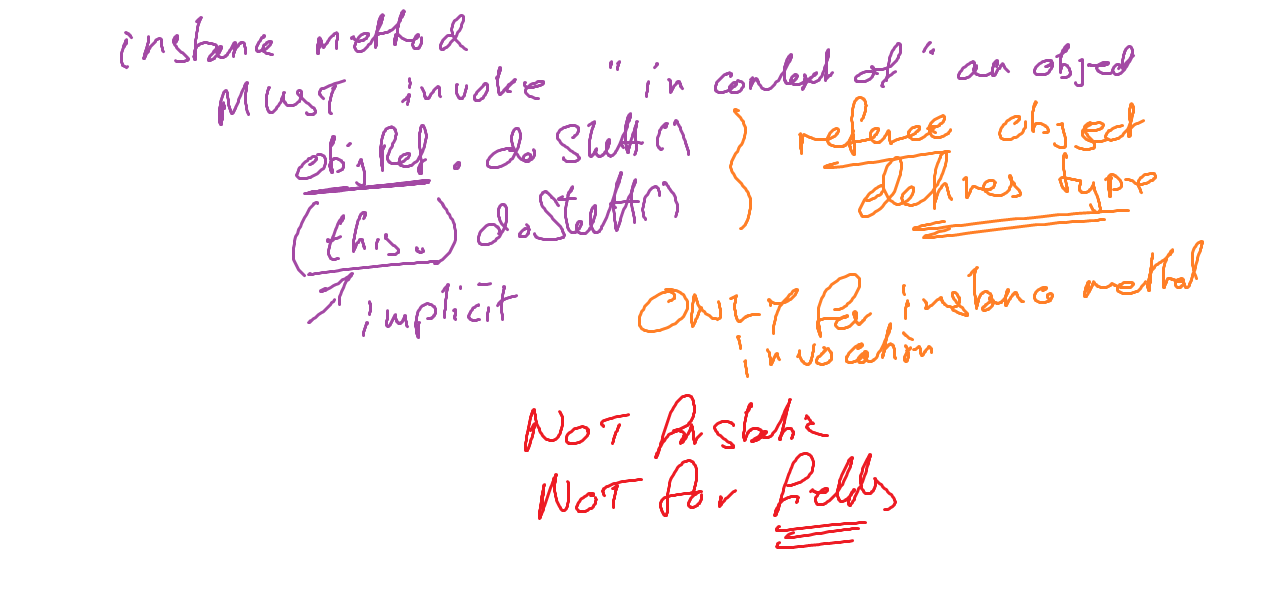 instance method
MUST invoke "in context of" an object
objRef . doStuff()
(this.) doStuff()
implicit
referee object
defines type
ONLY for instance method
invocation
NOT for static
NOT for fields